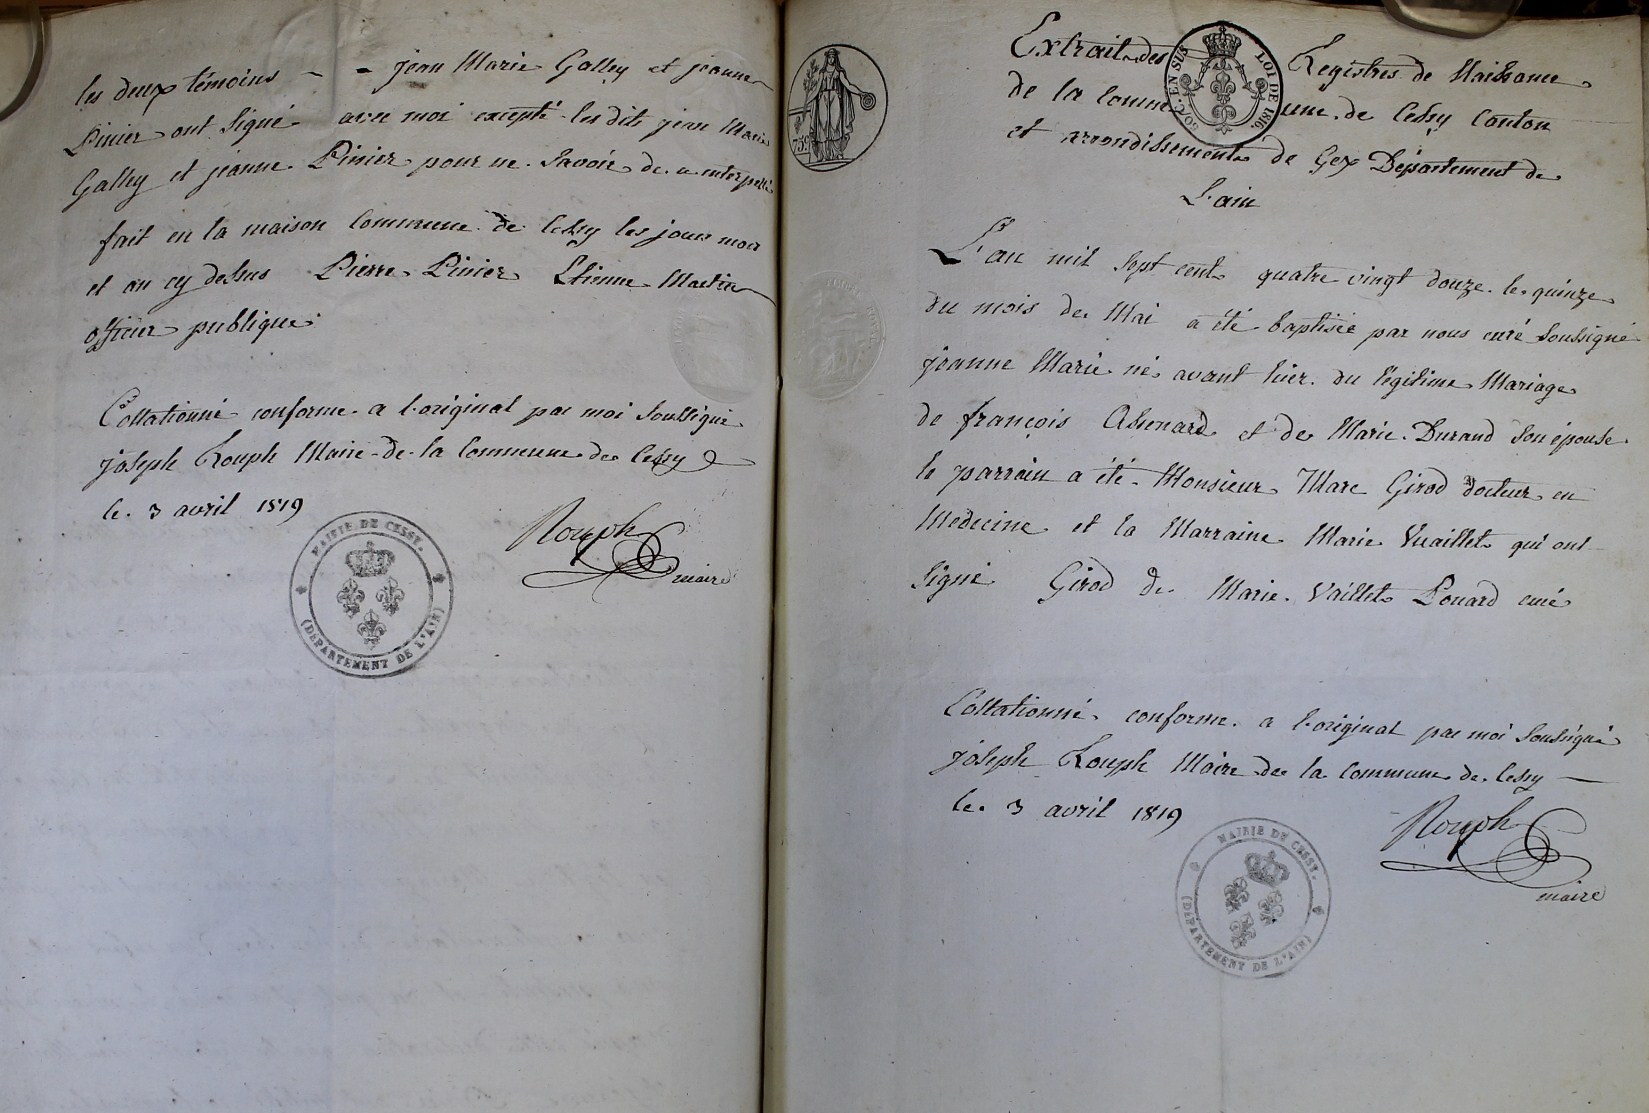 les deux témoins - - jean Marie Galley et jeanne
Pinier ont signé avec moi excepté les dits jean Marie
Galley et jeanne Pinier pour ne savoir de
fait en la maison Commune de Cessy les jour mois
et an cy dessus Pierre Pinier Etienne Martin
officier publique
Collationné conforme a l'original par moi soussigné
joseph Rouph Maire de la Commune de Cessy
le 3 avril 1819
Rouph
maire
MAIRIE DE CESSY.
(DÉPARTEMENT DE L'AIN)
75c
50C. EN SUS LOI DE 1816.
Extrait des Registres de Naissance
de la Commune de Cessy Canton
et arrondissement de Gex Département de
L'ain
L'an mil sept cent quatre vingt douze le quinze
du mois de Mai a été baptisée par nous curé soussigné
jeanne Marie né avant hier du légitime Mariage
de françois et de Marie Durand son épouse
le parrain a été Monsieur Marc Girod docteur en
Médecine et la Marraine Marie Vuaillet qui ont
signé Girod de Marie Vaillet Ponard curé
Collationné conforme a l'original par moi soussigné
joseph Rouph Maire de la Commune de Cessy
le 3 avril 1819
Rouph
maire
MAIRIE DE CESSY.
(DÉPARTEMENT DE L'AIN)